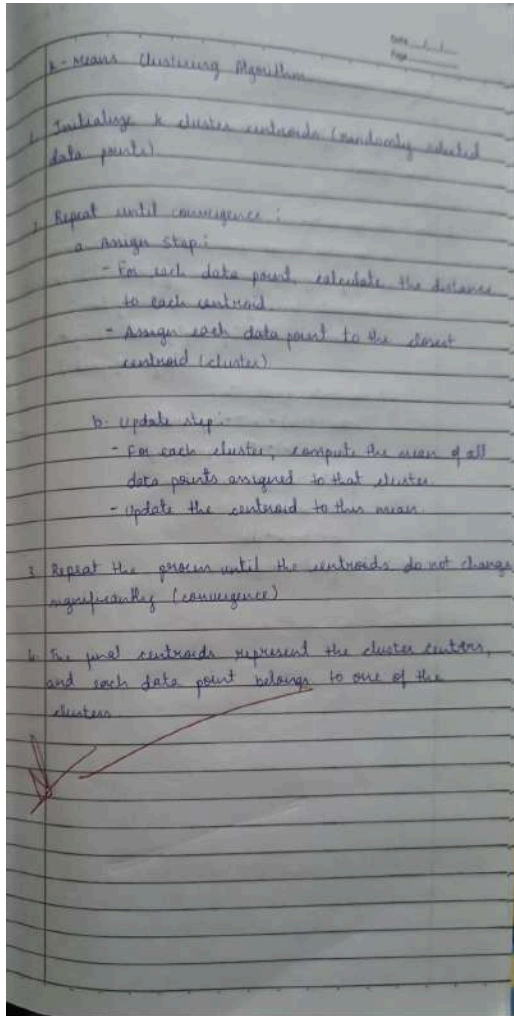 Date __/__/__
Page ____
K-Means Clustering Algorithm
1. Initialize k cluster centroids (randomly selected
data points)
2. Repeat until convergence :
a Assign Step :
- For each data point, calculate the distance
to each centroid.
- Assign each data point to the closest
centroid (cluster)
b. Update step :-
- For each cluster, compute the mean of all
data points assigned to that cluster.
- Update the centroid to this mean.
3 Repeat the process until the centroids do not change
significantly (convergence)
4. The final centroids represent the cluster centers,
and each data point belongs to one of the
clusters.